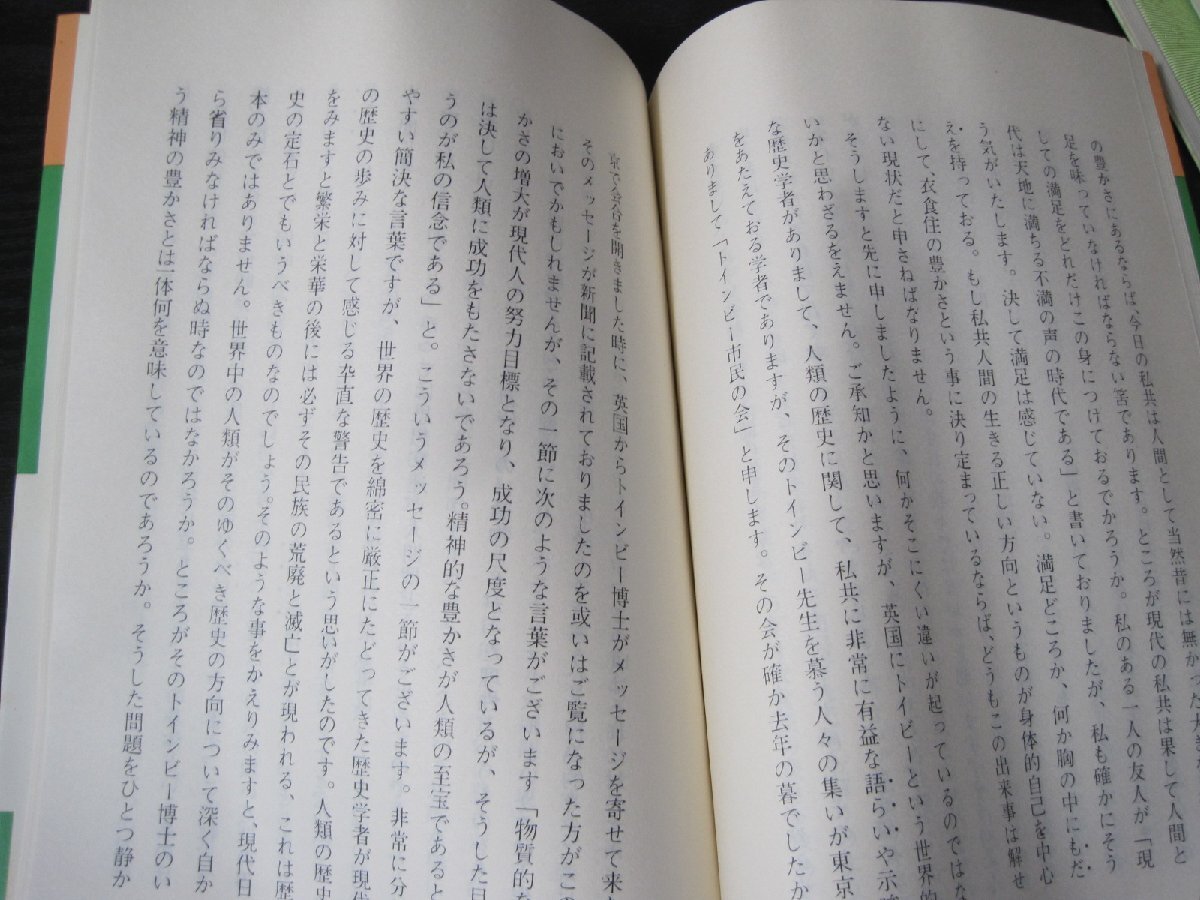 の豊かさにあるならば、今日の私共は人間として当然昔には無かった
足を味っていなければならない筈であります。ところが現代の私共は果して人間と
しての満足をどれだけこの身につけておるでかろうか。私のある一人の友人が「現
代は天地に満ちる不満の声の時代である」と書いておりましたが、私も確かにそう
う気がいたします。決して満足は感じていない。満足どころか、何か胸の中にもだ
えを持っておる。もし私共人間の生きる正しい方向というものが身体的自己を中心
にして、衣食住の豊かさという事に決り定まっているならば、どうもこの出来事は解せ
ない現状だと申さねばなりません。
そうしますと先に申しましたように、何かそこにくい違いが起っているのではな
いかと思わざるをえません。ご承知かと思いますが、英国にトイビーという世界的
な歴史学者がありまして、人類の歴史に関して、私共に非常に有益な語らいや示
をあたえておる学者でありますが、そのトインビー先生を慕う人々の集いが東京
ありまして「トインビー市民の会」と申します。その会が確か去年の暮でしたか
京で会合を開きました時に、英国からトインビー博士がメッセージを寄せて来
そのメッセージが新聞に記載されておりましたのを或いはご覧になった方がこ
においでかもしれませんが、その一節に次のような言葉がございます「物質的な
かさの増大が現代人の努力目標となり、成功の尺度となっているが、そうした目
は決して人類に成功をもたさないであろう。精神的な豊かさが人類の至宝であると
うのが私の信念である」と。こういうメッセージの一節がございます。非常に分
やすい簡決な言葉ですが、世界の歴史を綿密に厳正にたどってきた歴史学者が現
の歴史の歩みに対して感じる卒直な警告であるという思いがしたのです。人類の歴
をみますと繁栄と栄華の後には必ずその民族の荒廃と滅亡とが現われる、これは歴
史の定石とでもいうべきものなのでしょう。そのような事をかえりみますと、現代日
本のみではありません。世界中の人類がそのゆくべき歴史の方向について深く自か
ら省りみなければならぬ時なのではなかろうか。ところがそのトインビー博士のい
う精神の豊かさとは一体何を意味しているのであろうか。そうした問題をひとつ静か